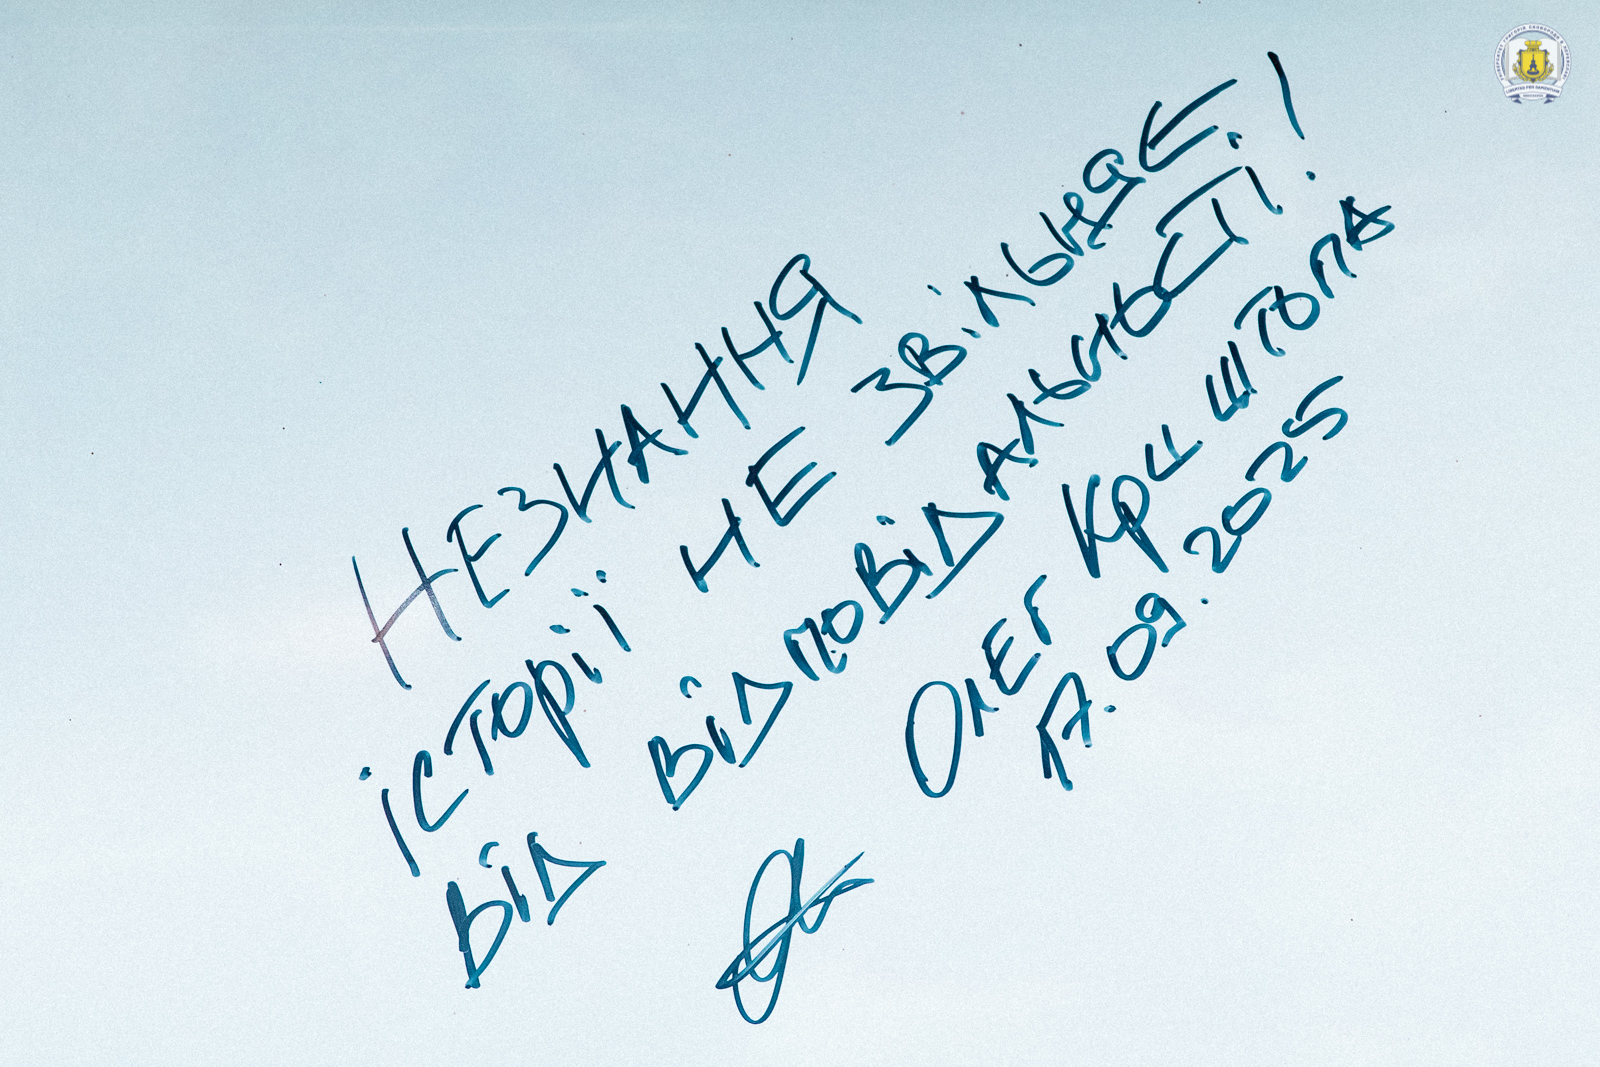 НЕЗНАННЯ
ІСТОРІЇ НЕ ЗВІЛЬНЯЄ.
ВІД ВІДПОВІДАЛЬНОСТІ!
ОЛЕГ КРИШТОПА
17.09.2025